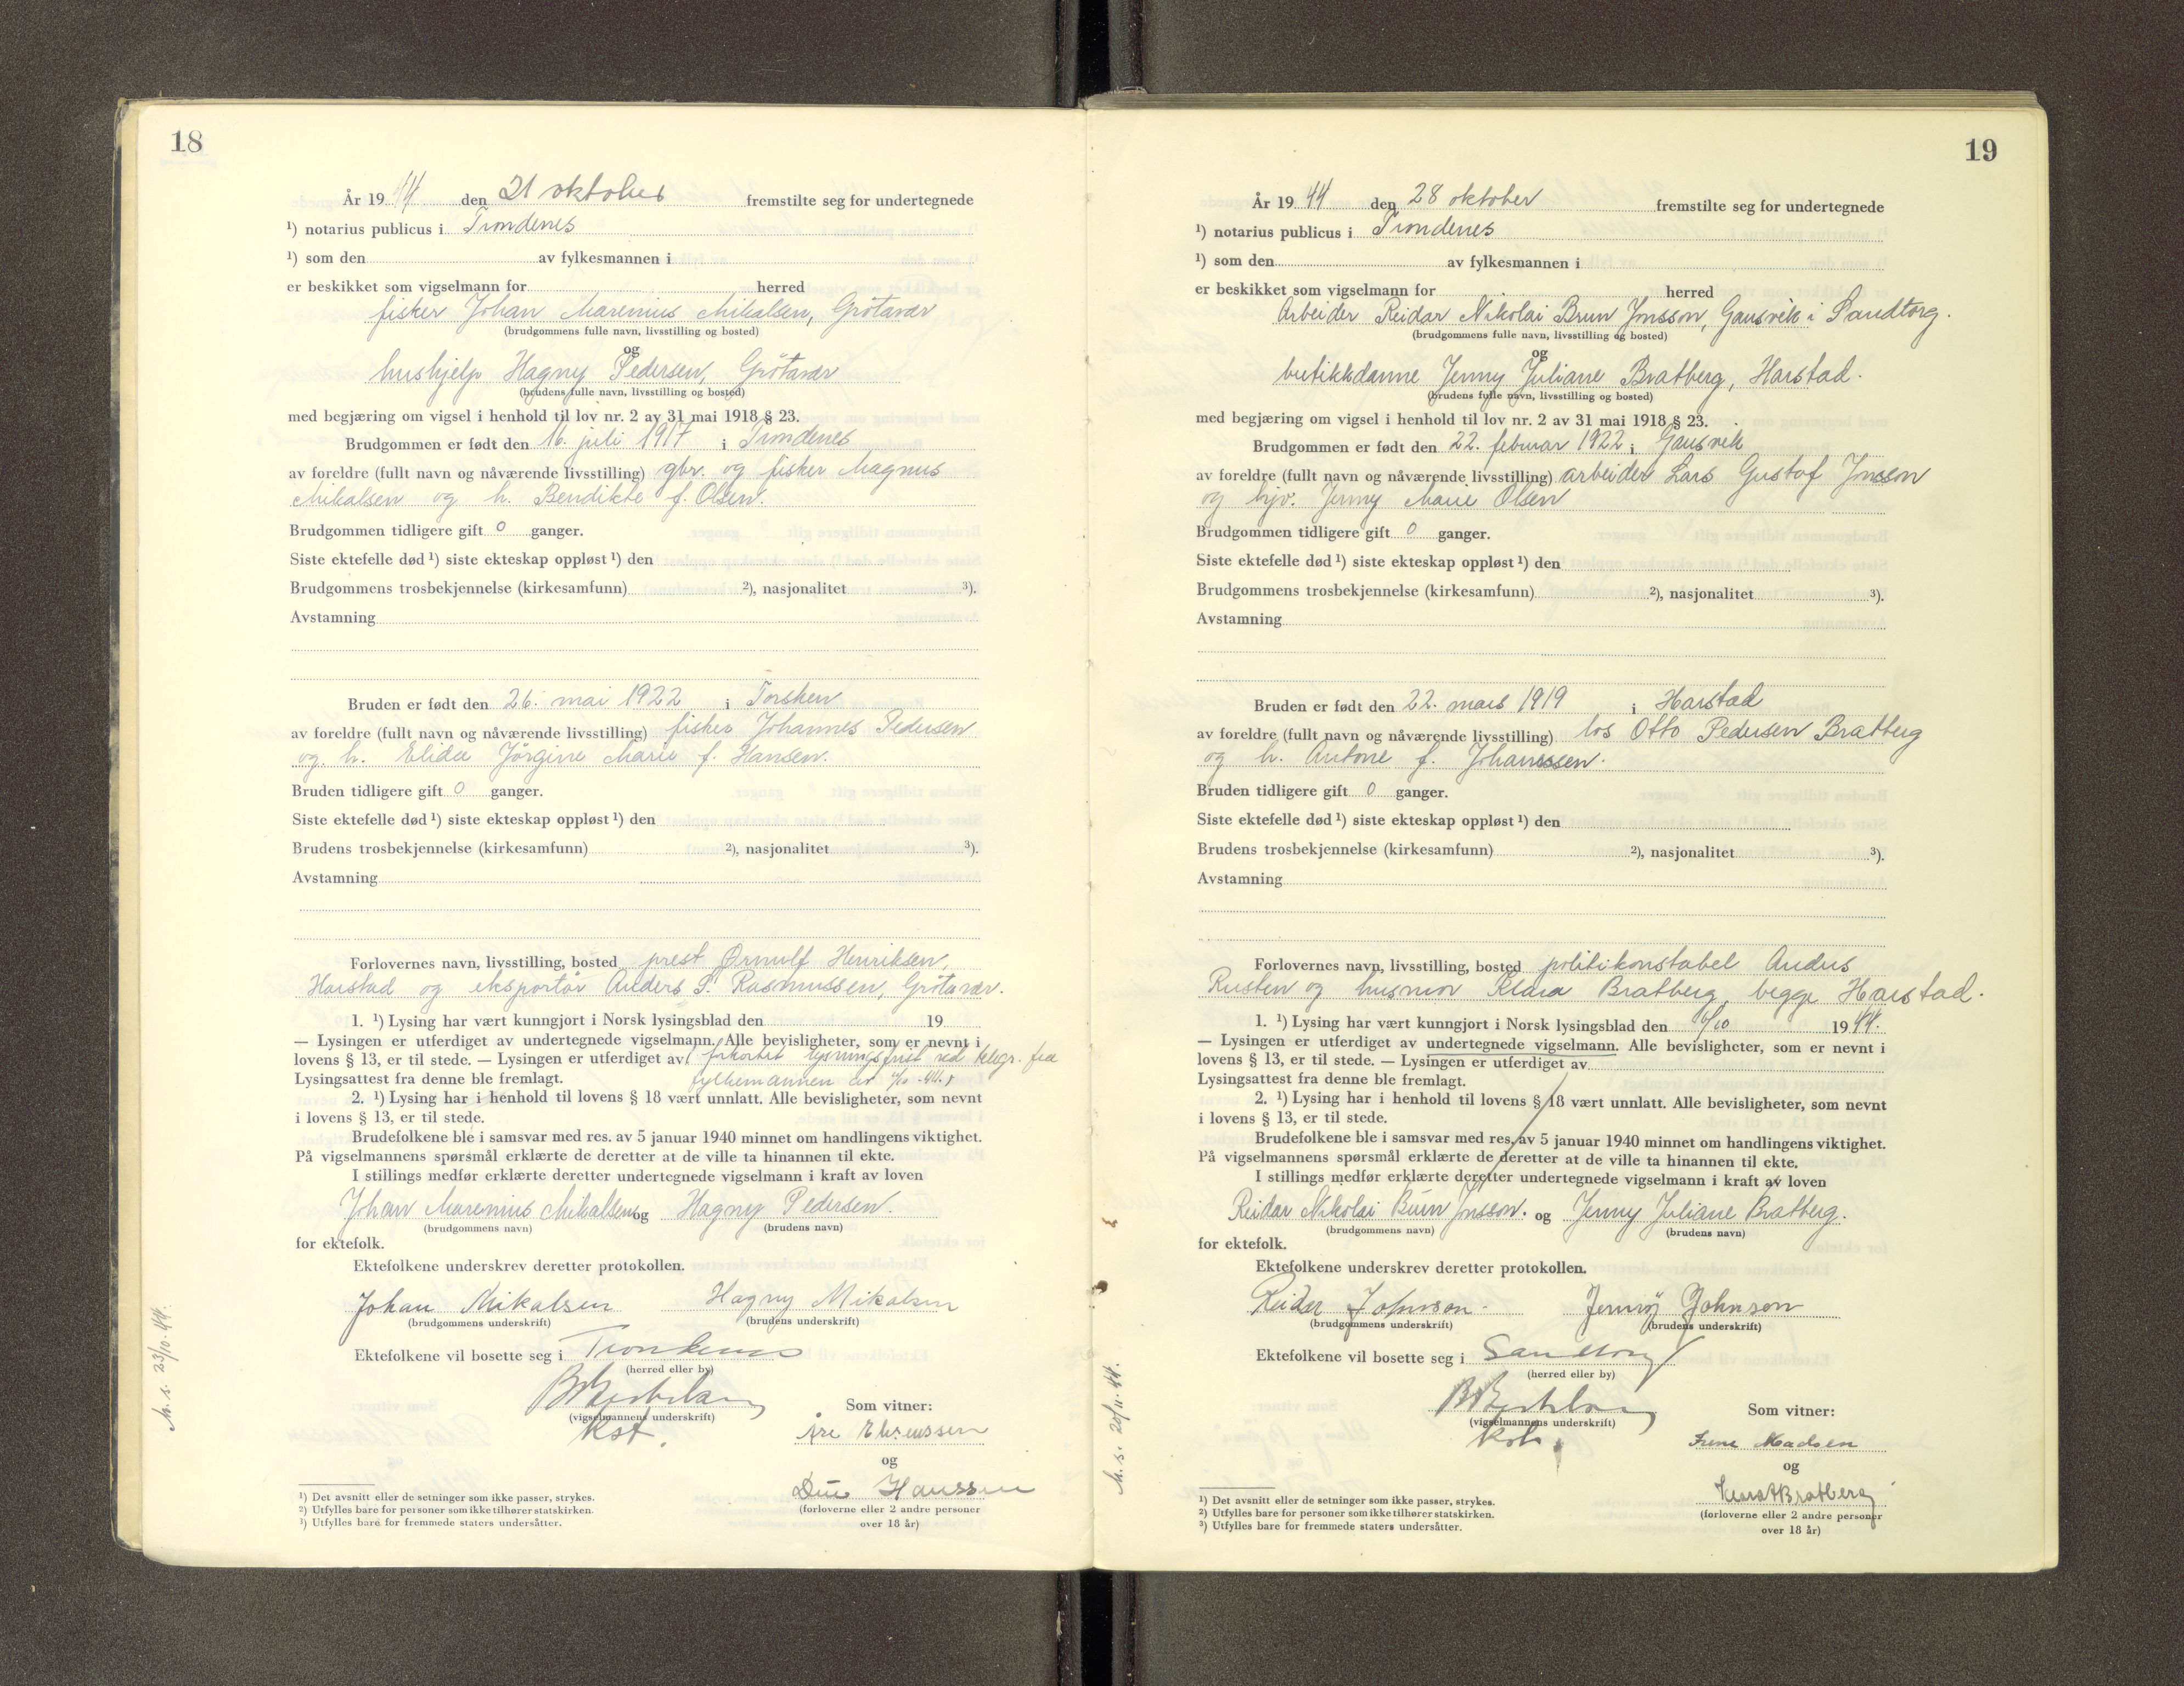 18
År 1944 den 21 oktober fremstilte seg for undertegnede
¹) notarius publicus i Trondenes
¹) som den av fylkesmannen i
er beskikket som vigselmann for herred
fisker Johan Marenius Mikalsen, Grötavær
(brudgommens fulle navn, livsstilling og bosted)
og
hushjelp Hagny Pedersen, Grötavær
(brudens fulle navn, livsstilling og bosted)
med begjæring om vigsel i henhold til lov nr. 2 av 31 mai 1918 § 23.
Brudgommen er født den 16. juli 1917 i Trondenes
av foreldre (fullt navn og nåværende livsstilling) gbr. og fisker Magnus
Mikalsen og h. Bendikte f. Olsen.
Brudgommen tidligere gift 0 ganger.
Siste ektefelle død ¹) siste ekteskap oppløst ¹) den
Brudgommens trosbekjennelse (kirkesamfunn) ²), nasjonalitet ³).
Avstamning
Bruden er født den 26. mai 1922 i Torsken
av foreldre (fullt navn og nåværende livsstilling) fisker Johannes Pedersen
og h. Elida Jörgine Marie f. Hansen.
Bruden tidligere gift 0 ganger.
Siste ektefelle død ¹) siste ekteskap oppløst ¹) den
Brudens trosbekjennelse (kirkesamfunn) ²), nasjonalitet ³).
Avstamning
Forlovernes navn, livsstilling, bosted prest Ørnulf Henriksen,
Harstad og eksportör Anders S. Rasmussen, Grötavær.
1. ¹) Lysing har vært kunngjort i Norsk lysingsblad den 19
— Lysingen er utferdiget av undertegnede vigselmann. Alle bevisligheter, som er nevnt i
lovens § 13, er til stede. — Lysingen er utferdiget av (forkortet lysningsfrist ved telegr. fra
Lysingsattest fra denne ble fremlagt. fylkesmannen av /10-44.)
2. ¹) Lysing har i henhold til lovens § 18 vært unnlatt. Alle bevisligheter, som nevnt
i lovens § 13, er til stede.
Brudefolkene ble i samsvar med res. av 5 januar 1940 minnet om handlingens viktighet.
På vigselmannens spørsmål erklærte de deretter at de ville ta hinannen til ekte.
I stillings medfør erklærte deretter undertegnede vigselmann i kraft av loven
Johan Marenius Mikalsen og Hagny Pedersen.
(brudgommens navn) (brudens navn)
for ektefolk.
Ektefolkene underskrev deretter protokollen.
Johan Mikalsen Hagny Mikalsen
(brudgommens underskrift) (brudens underskrift)
Ektefolkene vil bosette seg i Trondenes
(herred eller by)
(vigselmannens underskrift)
Kst.
Som vitner:
Åre
og
Hanssen
(forloverne eller 2 andre personer
over 18 år)
¹) Det avsnitt eller de setninger som ikke passer, strykes.
²) Utfylles bare for personer som ikke tilhører statskirken.
³) Utfylles bare for fremmede staters undersåtter.
m.s. 23/10-44.
19
År 1944 den 28 oktober fremstilte seg for undertegnede
¹) notarius publicus i Trondenes
¹) som den av fylkesmannen i
er beskikket som vigselmann for herred
Arbeider Reidar Nikolai Brun Jonsson, Gausvik i Sandtorg.
(brudgommens fulle navn, livsstilling og bosted)
og
butikkdamme Jenny Juliane Bratberg, Harstad.
(brudens fulle navn, livsstilling og bosted)
med begjæring om vigsel i henhold til lov nr. 2 av 31 mai 1918 § 23.
Brudgommen er født den 22. februar 1922 i Gausvik
av foreldre (fullt navn og nåværende livsstilling) arbeider Lars Gustof Jonsson
og hjv. Jenny Marie Olsen
Brudgommen tidligere gift 0 ganger.
Siste ektefelle død ¹) siste ekteskap oppløst ¹) den
Brudgommens trosbekjennelse (kirkesamfunn) ²), nasjonalitet ³).
Avstamning
Bruden er født den 22. mars 1919 i Harstad
av foreldre (fullt navn og nåværende livsstilling) los Otto Pedersen Bratberg
og h. Antone f. Johanssen.
Bruden tidligere gift 0 ganger.
Siste ektefelle død ¹) siste ekteskap oppløst ¹) den
Brudens trosbekjennelse (kirkesamfunn) ²), nasjonalitet ³).
Avstamning
Forlovernes navn, livsstilling, bosted politikonstabel Anders
Rusten og husmor Klara Bratberg, begge Harstad.
1. ¹) Lysing har vært kunngjort i Norsk lysingsblad den 6/10 1944.
— Lysingen er utferdiget av undertegnede vigselmann. Alle bevisligheter, som er nevnt i
lovens § 13, er til stede. — Lysingen er utferdiget av
Lysingsattest fra denne ble fremlagt.
2. ¹) Lysing har i henhold til lovens § 18 vært unnlatt. Alle bevisligheter, som nevnt
i lovens § 13, er til stede.
Brudefolkene ble i samsvar med res. av 5 januar 1940 minnet om handlingens viktighet.
På vigselmannens spørsmål erklærte de deretter at de ville ta hinannen til ekte.
I stillings medfør erklærte deretter undertegnede vigselmann i kraft av loven
Reidar Nikolai Brun Jonsson. og Jenny Juliane Bratberg.
(brudgommens navn) (brudens navn)
for ektefolk.
Ektefolkene underskrev deretter protokollen.
Reidar Johnson. Jenny Johnson
(brudgommens underskrift) (brudens underskrift)
Ektefolkene vil bosette seg i Sandtorg
(herred eller by)
(vigselmannens underskrift)
Kst.
Som vitner:
Irene Madsen
og
Bratberg
(forloverne eller 2 andre personer
over 18 år)
¹) Det avsnitt eller de setninger som ikke passer, strykes.
²) Utfylles bare for personer som ikke tilhører statskirken.
³) Utfylles bare for fremmede staters undersåtter.
m.s. 20/11-44.